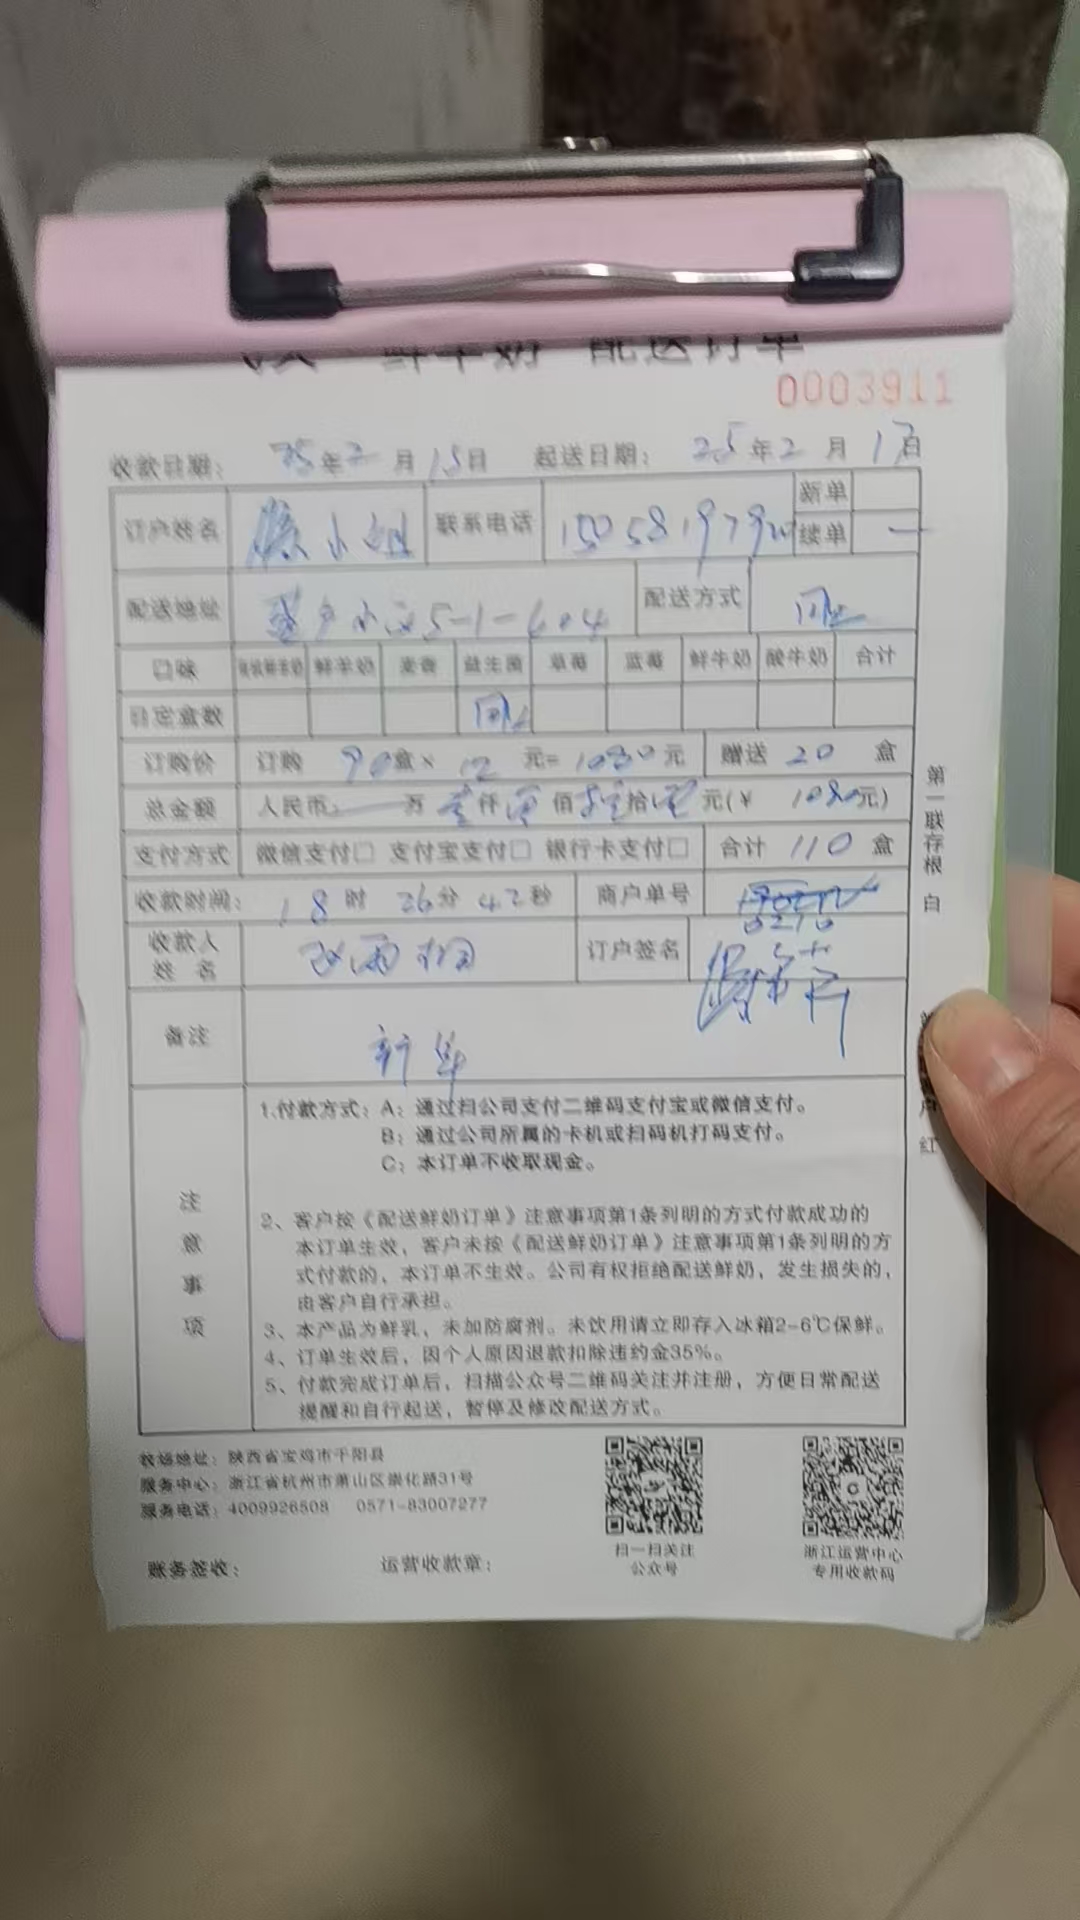 鲜羊奶 配送订单
0003911
收款日期： 25年2月15日 起送日期： 25年2月17日
订户姓名 滕小姐 联系电话 新单
续单 一
配送地址 小区5-1-604 配送方式 同上
口味 鲜羊奶 麦香 益生菌 草莓 蓝莓 鲜牛奶 酸牛奶 合计
日定盒数 同上
订购价 订购 90盒× 12 元= 1080元 赠送 20 盒
总金额 人民币： 万 壹仟零佰捌拾零元(￥ 1080元)
支付方式 微信支付□ 支付宝支付□ 银行卡支付□ 合计 110 盒
收款时间： 18时 26分 42秒 商户单号
0210
收款人
姓 名 雨桐 订户签名
备注 新单
注意事项
1.付款方式：A：通过扫公司支付二维码支付宝或微信支付。
B：通过公司所属的卡机或扫码机打码支付。
C：本订单不收取现金。
2、客户按《配送鲜奶订单》注意事项第1条列明的方式付款成功的
本订单生效，客户未按《配送鲜奶订单》注意事项第1条列明的方
式付款的，本订单不生效。公司有权拒绝配送鲜奶，发生损失的，
由客户自行承担。
3、本产品为鲜乳，未加防腐剂。未饮用请立即存入冰箱2-6℃保鲜。
4、订单生效后，因个人原因退款扣除违约金35%。
5、付款完成订单后，扫描公众号二维码关注并注册，方便日常配送
提醒和自行起送，暂停及修改配送方式。
第一联存根 白
户 红
牧场地址：陕西省宝鸡市千阳县
服务中心：浙江省杭州市萧山区崇化路31号
服务电话：4009926508 0571-83007277
扫一扫关注
公众号
浙江运营中心
专用收款码
账务签收： 运营收款章：